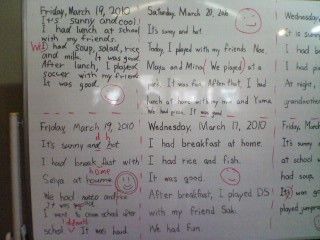 Friday, March 19, 2010
It's sunny and cool.
I had lunch at school
with my friends.
We had soup, salad, rice
and milk. It was good.
After lunch, I played
soccer with my friends
It was good.
Saturday, March 20,
It's sunny and hot.
Today, I played with my friends Noa
Mayu and Mina. We played at a
park. It was fun. After that, I had
lunch at home with my mom and Yuma
We had pizza. It was good.
Wednesday
It is sunny
I had b
from
I had
At night,
grandmother
Friday, March 19, 2010
It's sunny and hot.
I had break fast with
Seiya at home
We had natto and rice
It was good
I went to school after
school. It was hard.
Wednesday, March 17, 2010
I had breakfast at home.
I had rice and fish.
It was good.
After breakfast, I played DS
with my friend Saki.
We had Fun.
Friday, M
It's sunny
I had
at school
and
It was good
played